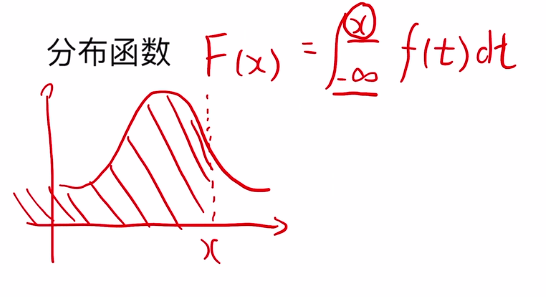 分布函数 F(x) = ∫_{-∞}^{x} f(t)dt
x